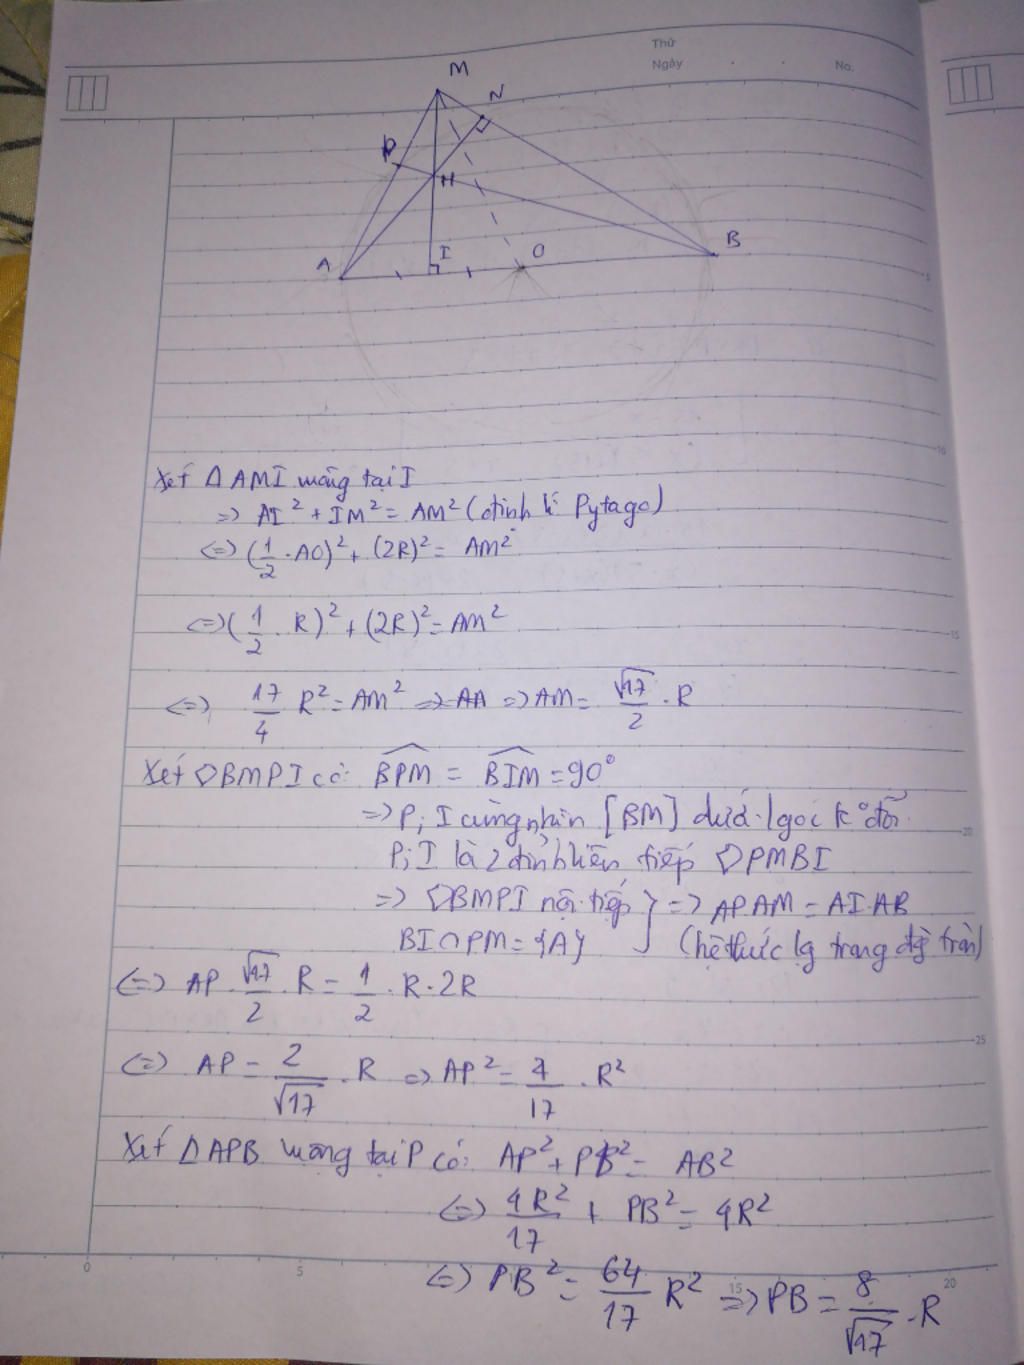 Thứ
Ngày
No.
M
N
P
H
A
I
O
B
5
10
Xét Δ AMI vuông tại I
=> AI² + IM² = AM² (định lí Pytago)
<=> (1/2 . AO)² + (2R)² = AM²
<=> (1/2 . R)² + (2R)² = AM²
15
<=> 17/4 R² = AM² => AA => AM = √17/2 . R
Xét ◇BMPI có: BPM = BIM = 90°
=> P; I cùng nhìn [BM] dưới 1 góc k° đổi
20
P; I là 2 đỉnh liên tiếp ◇PMBI
=> ◇BMPI nội tiếp } => AP.AM = AI.AB
BI ∩ PM = {A} (hệ thức lg trong đg tròn)
<=> AP . √17/2 . R = 1/2 . R . 2R
25
<=> AP = 2/√17 . R => AP² = 4/17 . R²
Xét Δ APB vuông tại P có: AP² + PB² = AB²
<=> 4R²/17 + PB² = 4R²
0 5 15 20
<=> PB² = 64/17 R² => PB = 8/√17 . R